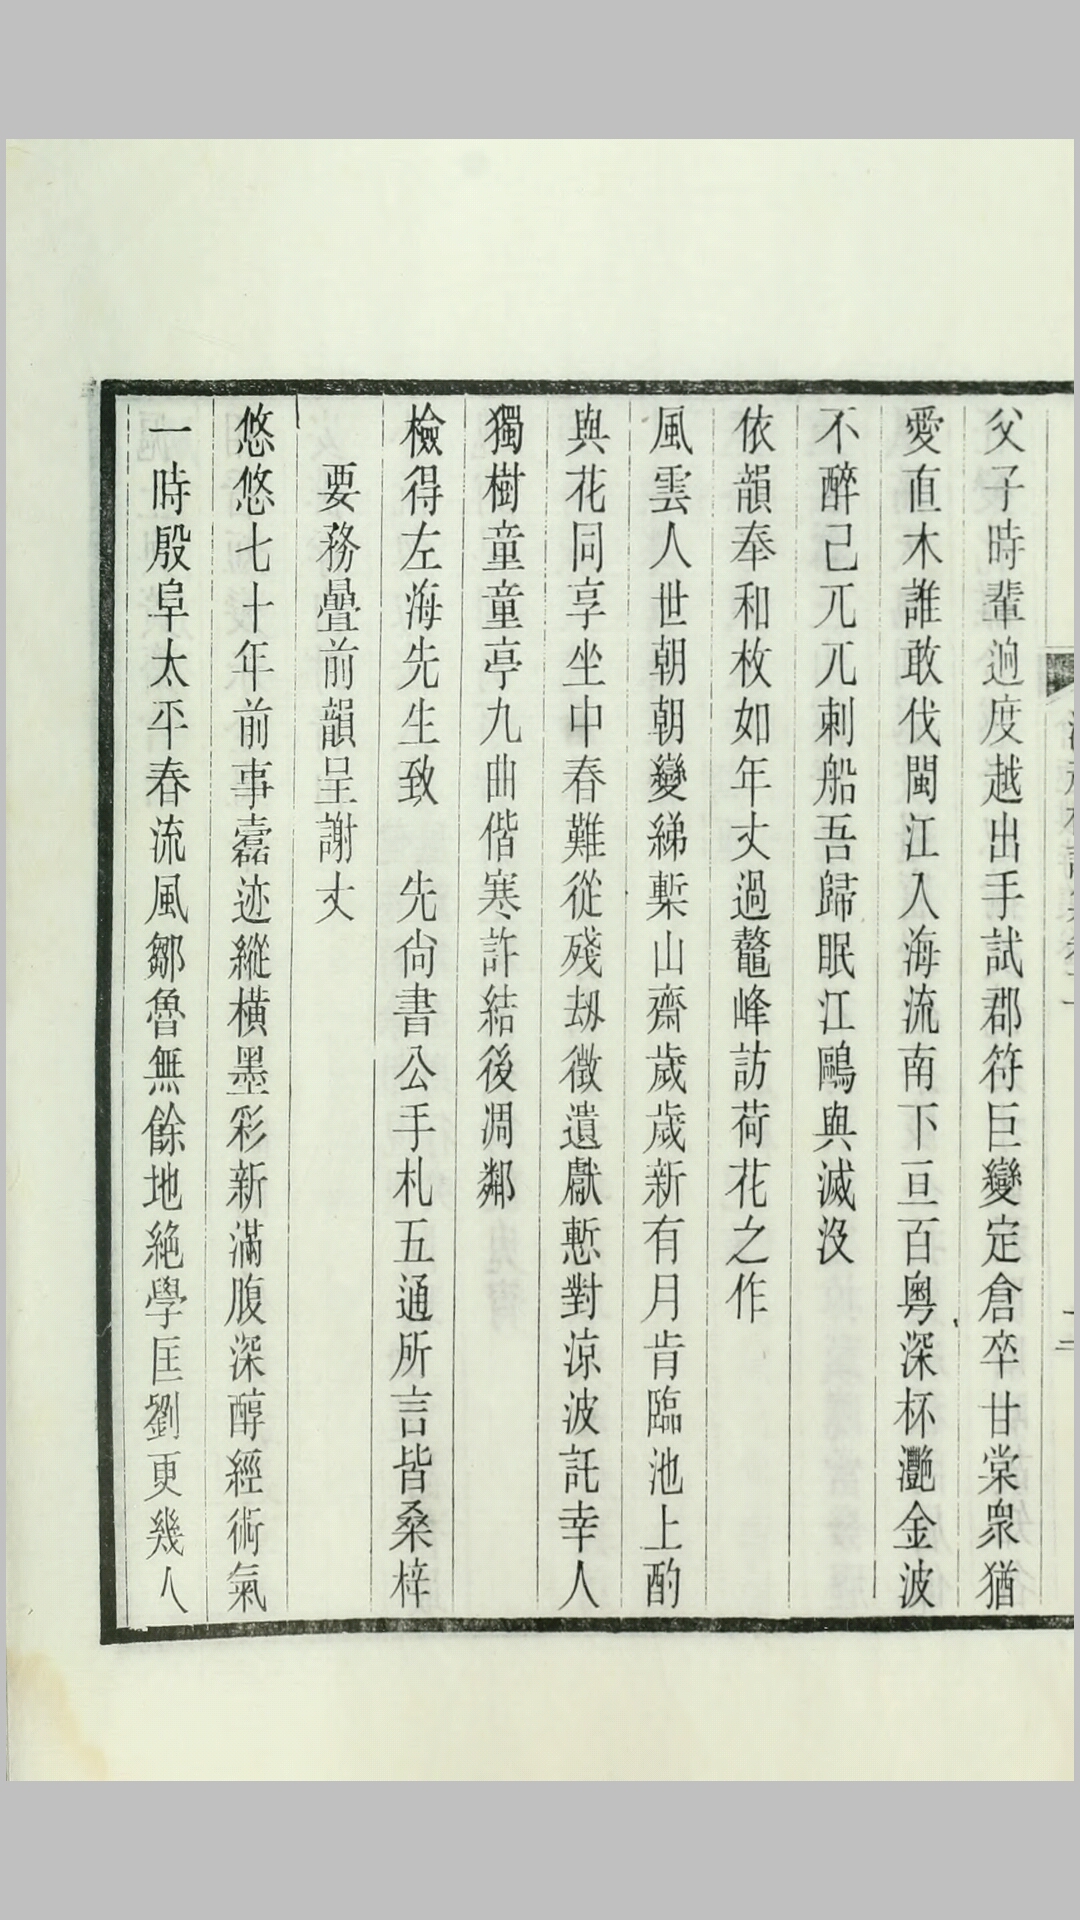 父子時輩迥度越出手試郡符巨變定倉卒甘棠衆猶
愛直木誰敢伐閩江入海流南下亘百粵深杯灔金波
不醉己兀兀刺船吾歸眠江鷗與滅沒
依韻奉和枚如年丈過鼇峰訪荷花之作
風雲人世朝朝變綈槧山齋歲歲新有月肯臨池上酌
與花同享坐中春難從殘劫徵遺獻慙對涼波託幸人
獨樹童童亭九曲偕寒許結後凋鄰
檢得左海先生致　先尙書公手札五通所言皆桑梓
要務疊前韻呈謝丈
悠悠七十年前事蠹迹縱橫墨彩新滿腹深醇經術氣
一時殷阜太平春流風鄒魯無餘地絶學匡劉更幾人